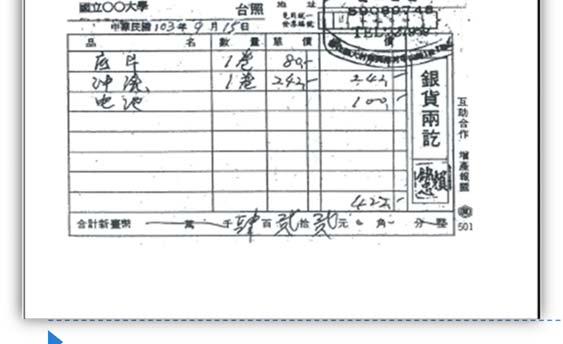 國立〇〇大學 台照 地址
免用統一發票編號 59089748
TEL:
中華民國103年9月15日
品名 數量 單價 價
底片 1卷 80.-
沖洗 1卷 242.- 242.-
电池 100.-
銀貨兩訖
互助合作 增產報國
422.-
合計新臺幣 萬 仟肆百貳拾貳元 角 分整
501